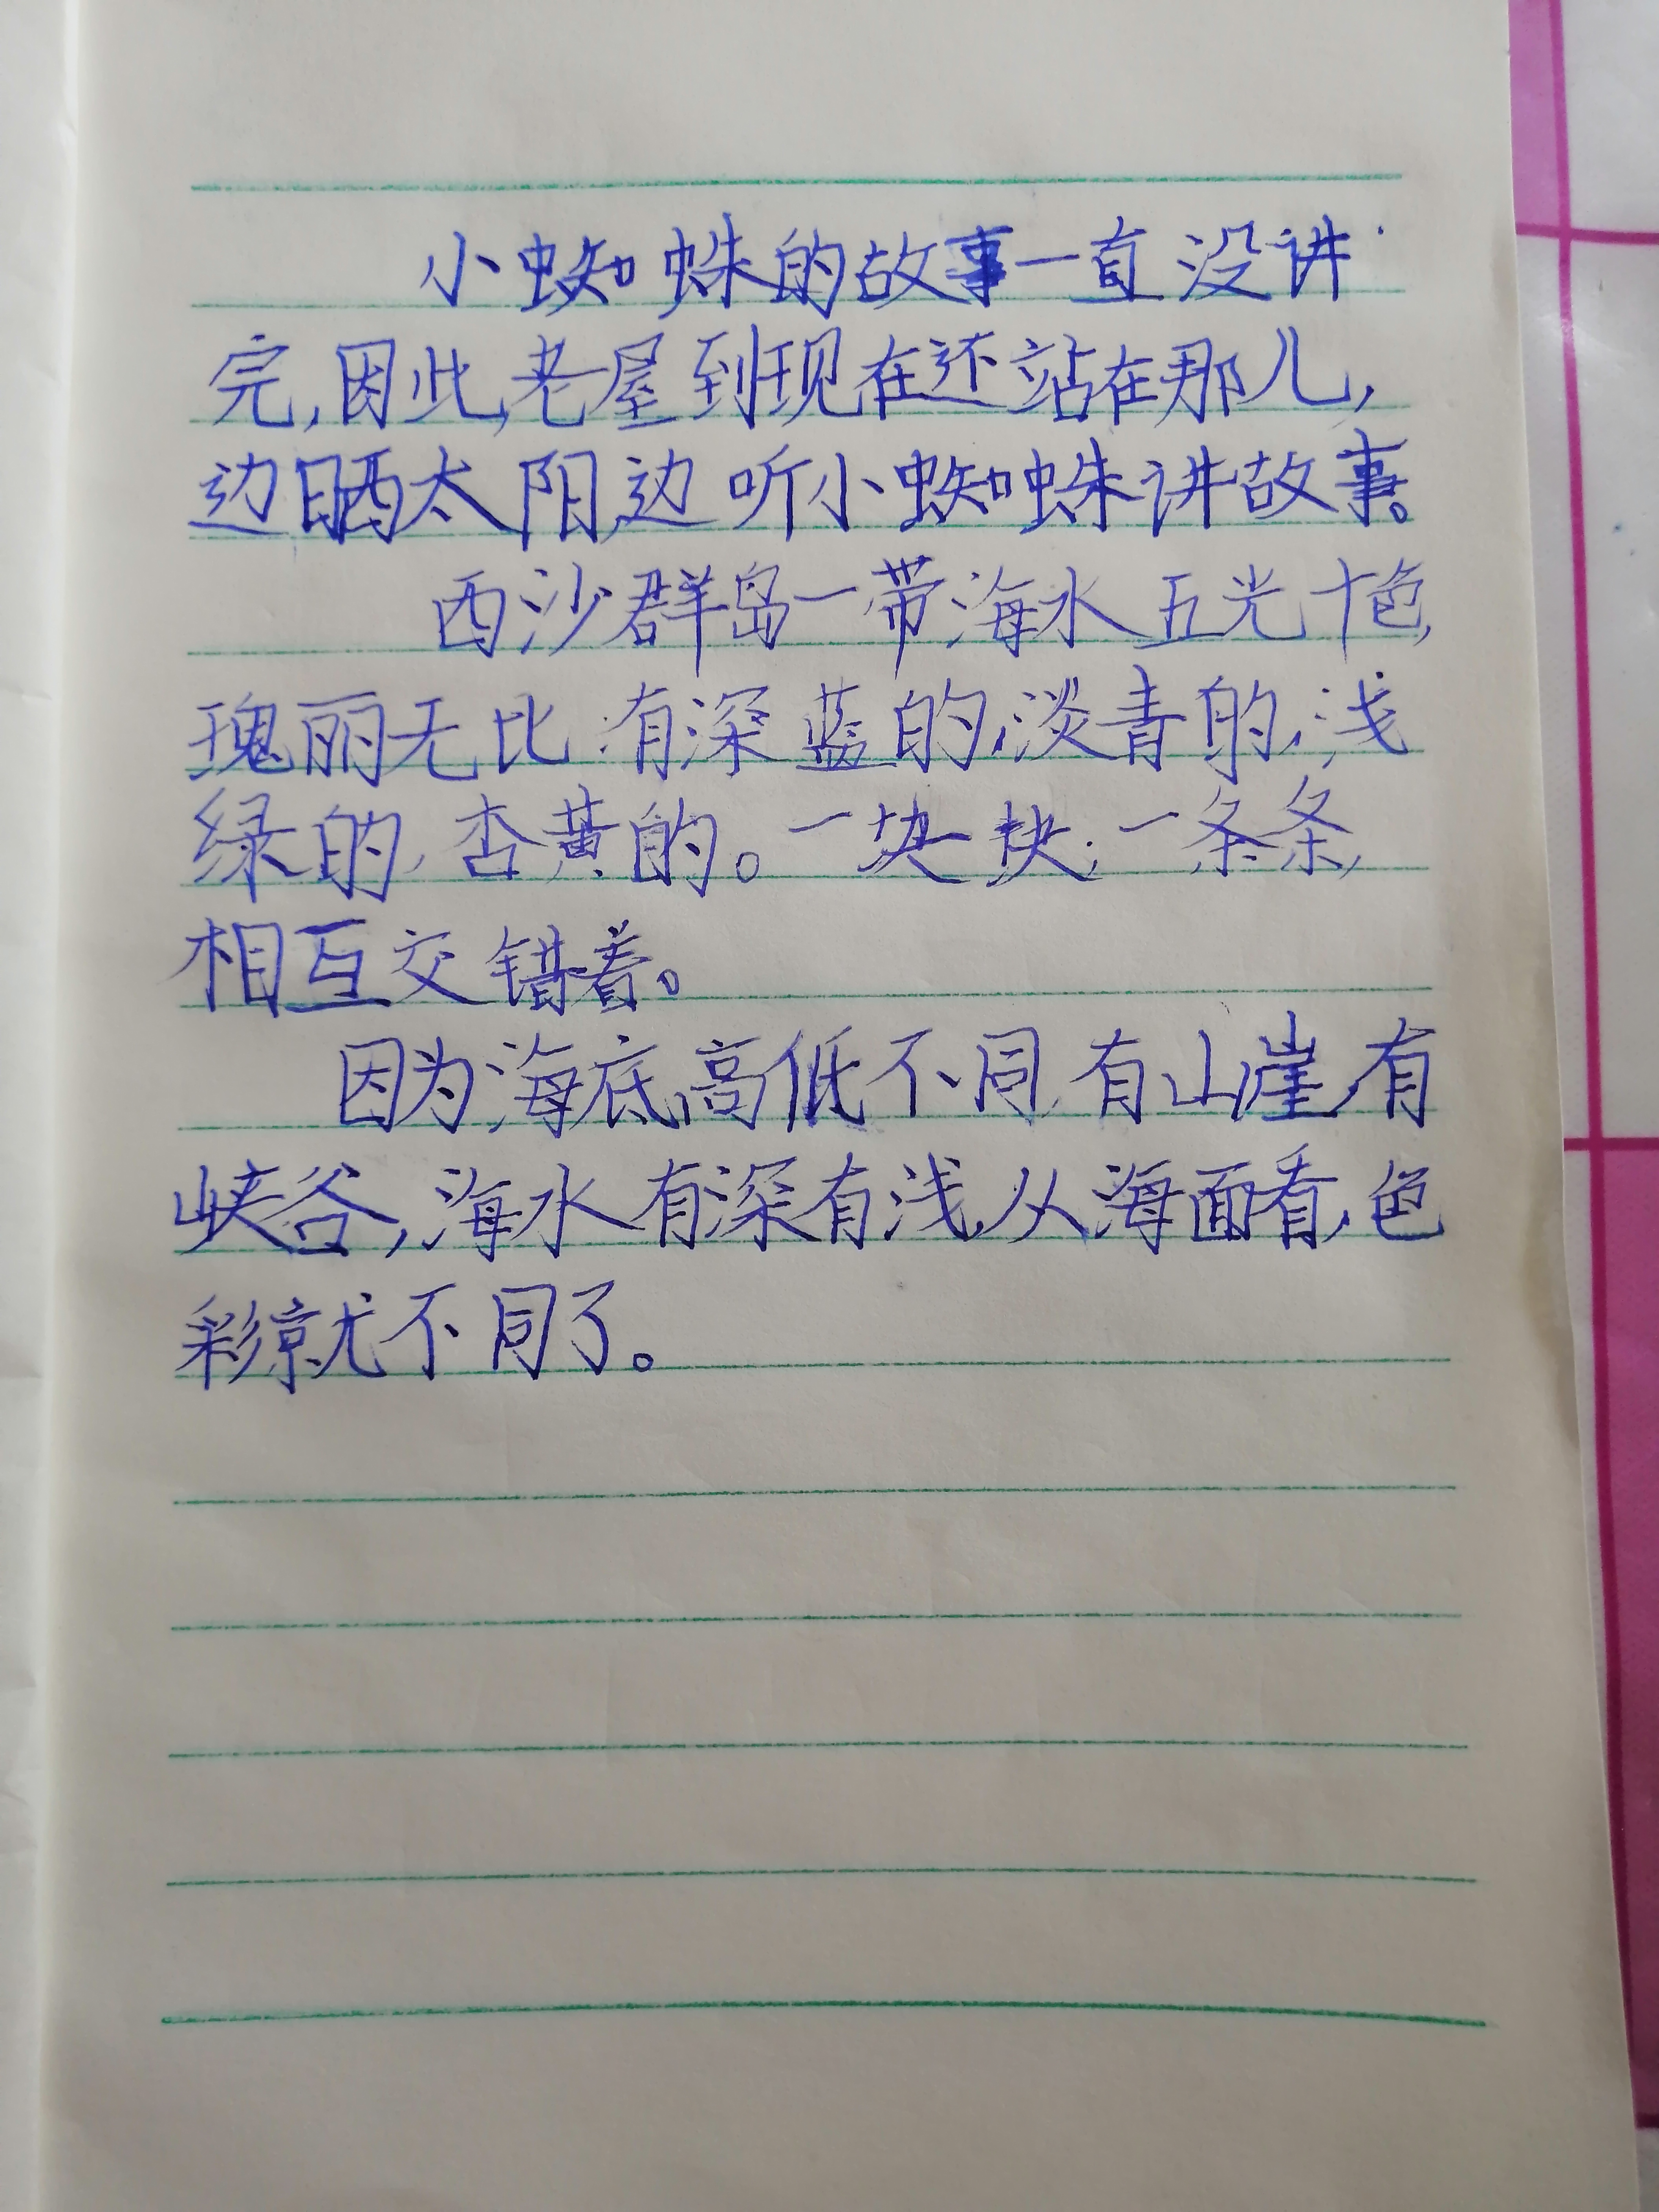 小蜘蛛的故事一直没讲
完,因此,老屋到现在还站在那儿,
边晒太阳,边听小蜘蛛讲故事。
西沙群岛一带海水五光十色,
瑰丽无比:有深蓝的,淡青的,浅
绿的,杏黄的。一块块,一条条,
相互交错着。
因为海底高低不同,有山崖,有
峡谷,海水有深有浅,从海面看,色
彩就不同了。